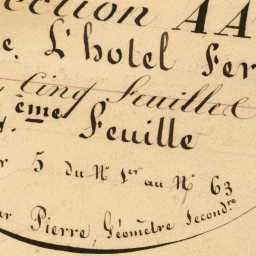 ection AA
e. L'hotel Fer
Cinq Feuilles
ème Feuille
5 du N° 1er au N° 63
ar Pierre, Géomètre Secondre